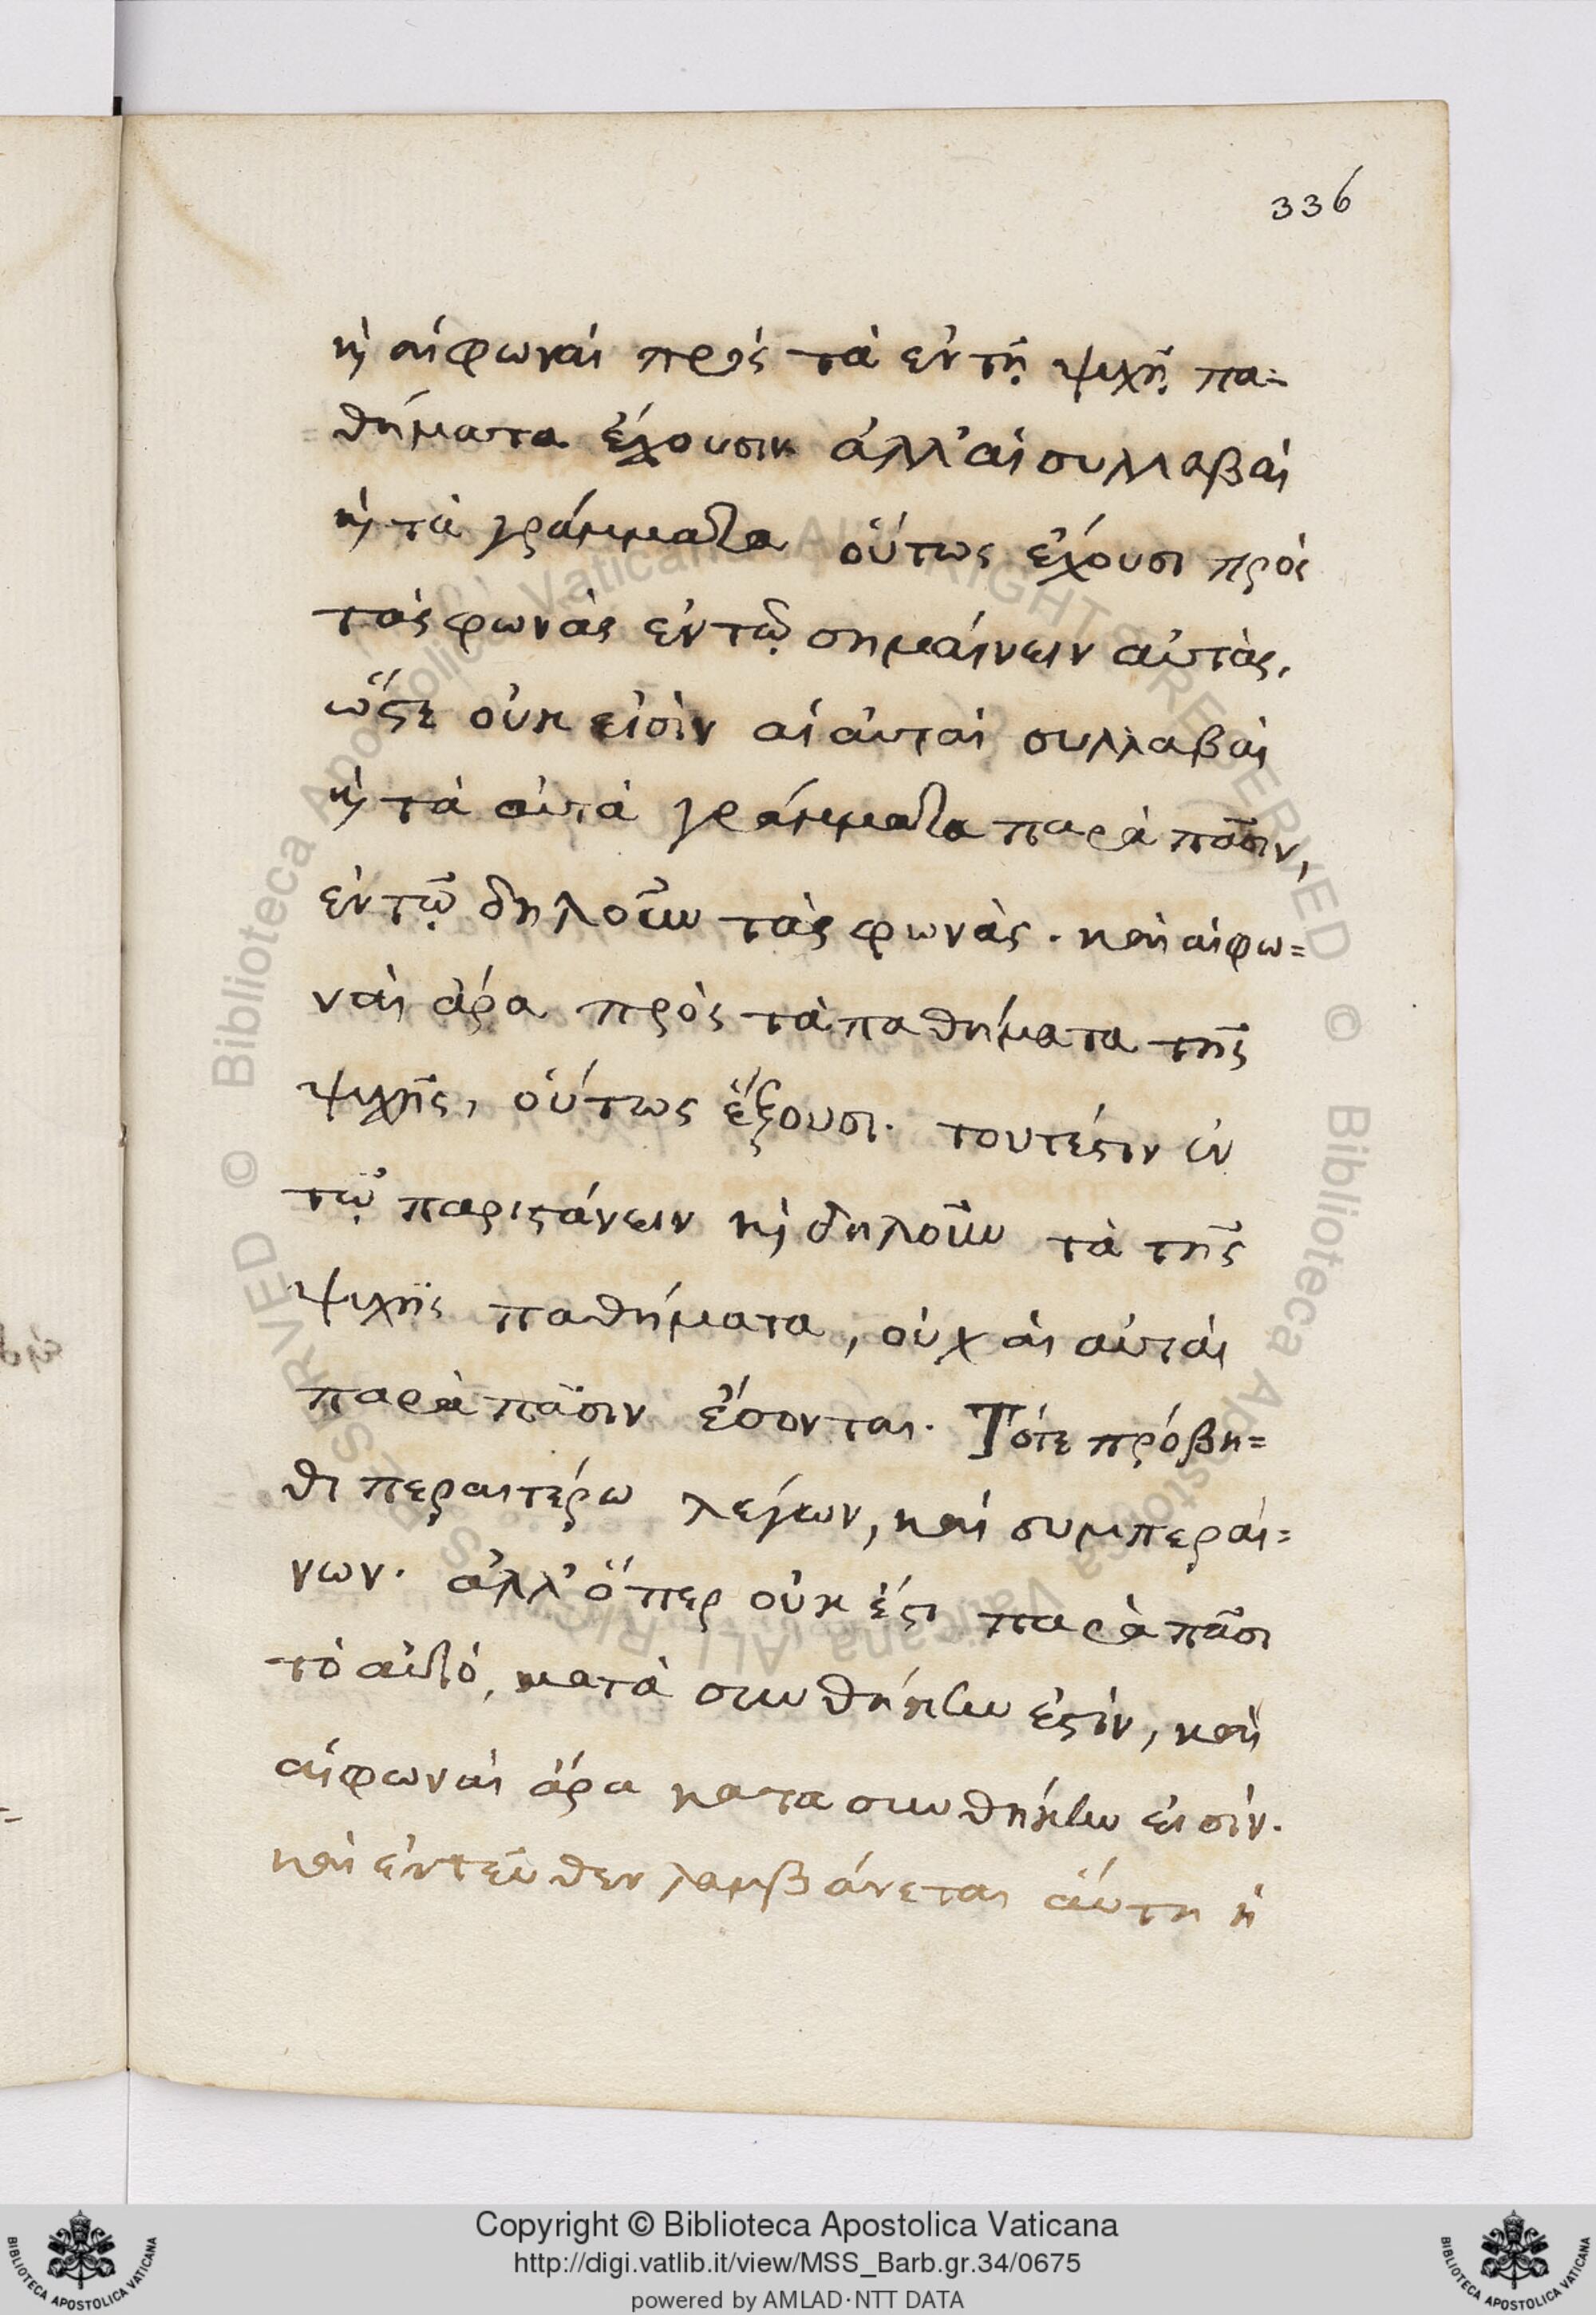 336
καὶ αἱ φωναὶ πρὸς τὰ ἐν τῇ ψυχῇ πα=
θήματα ἔχουσιν ἀλλ' αἱ συλλαβαὶ
καὶ τὰ γράμματα οὕτως ἔχουσι πρὸς
τὰς φωνὰς ἐν τῷ σημαίνειν αὐτὰς,
ὥστε οὐκ εἰσὶν αἱ αὐταὶ συλλαβαὶ
καὶ τὰ αὐτὰ γράμματα παρὰ πᾶσιν,
ἐν τῷ δηλοῦν τὰς φωνὰς. καὶ αἱ φω=
ναὶ ἄρα πρὸς τὰ παθήματα τῆς
ψυχῆς, οὕτως ἕξουσι. τουτέστιν ἐν
τῷ παριστάνειν καὶ δηλοῦν τὰ τῆς
ψυχῆς παθήματα, οὐχ αἱ αὐταὶ
παρὰ πᾶσιν ἔσονται. Τότε πρόβη=
θι περαιτέρω λέγων, καὶ συμπεραί=
νων. ἀλλ' ὅπερ οὐκ ἔστι παρὰ πᾶσι
τὸ αὐτό, κατὰ συνθήκην ἐστίν, καὶ
αἱ φωναὶ ἄρα κατα συνθήκην εἰσίν.
καὶ ἐντεῦθεν λαμβάνεται αὕτη ἡ
Copyright © Biblioteca Apostolica Vaticana
http://digi.vatlib.it/view/MSS_Barb.gr.34/0675
powered by AMLAD·NTT DATA
BIBLIOTECA APOSTOLICA VATICANA
BIBLIOTECA APOSTOLICA VATICANA
© Biblioteca Apostolica Vaticana ALL RIGHTS RESERVED © Biblioteca Apostolica Vaticana ALL RIGHTS RESERVED